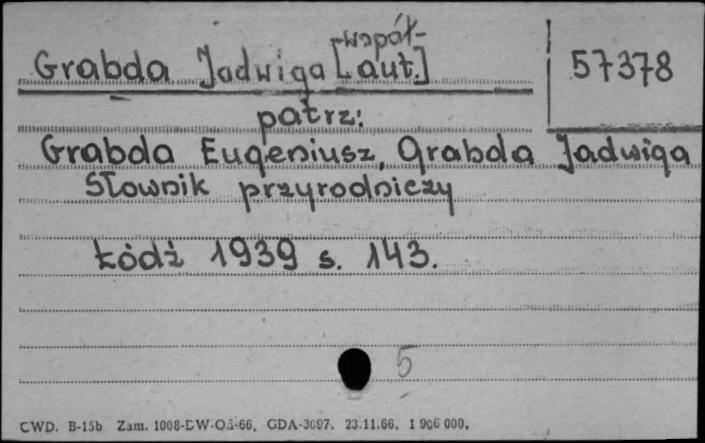 Grabda Jadwiga [-współ-aut.]
57378
patrz:
Grabda Eugeniusz, Grabda Jadwiga
Słownik przyrodniczy
Łódź 1939 s. 143.
5
CWD. B-15b Zam. 1008-DW-Oś-66. GDA-3097. 23.11.66. 1 906 000.